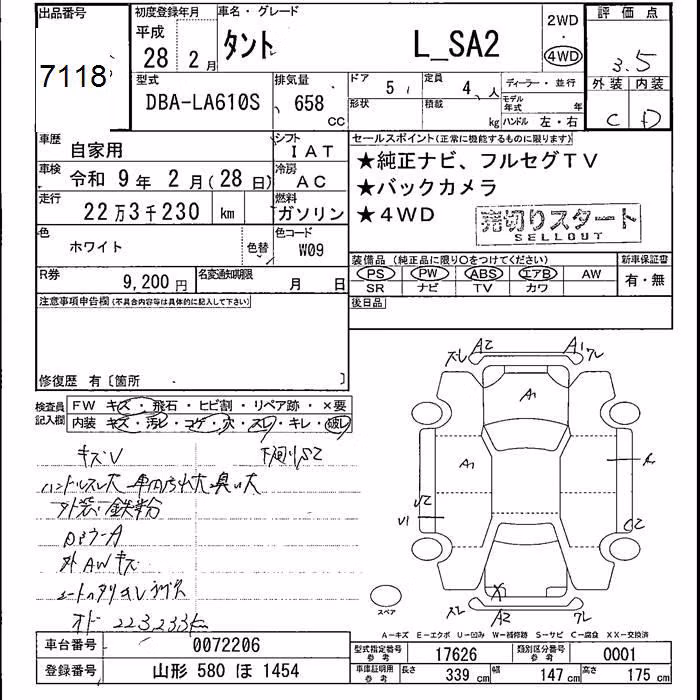 出品番号
7118
初度登録年月
平成
28 2 月
車名・グレード
タント L_SA2
2WD
・
4WD
評価点
3.5
外装 内装
C D
型式
DBA-LA610S
排気量
658 CC
ドア 5
定員 4 人
形状
積載 kg
ディーラー・並行
モデル年式 年
ハンドル 左・右
車歴
自家用
シフト
IAT
車検
令和 9 年 2 月(28 日)
冷房
AC
走行
22万3千230 km
燃料
ガソリン
色
ホワイト
色替
色コード
W09
R券
9,200 円
名変通知期限
月 日
セールスポイント(正常に機能するものに限ります)
★純正ナビ、フルセグTV
★バックカメラ
★4WD
売切りスタート
SELLOUT
装備品 (純正品に限り○をつけてください)
PS PW ABS エアB AW
SR ナビ TV カワ
新車保証書
有・無
後日品
注意事項申告欄(不具合内容等は具体的に記入して下さい)
修復歴 有〔箇所 〕
検査員記入欄
FW キズ・飛石・ヒビ割・リペア跡・×要
内装 キズ・汚レ・コゲ・穴・スレ・キレ・破レ
キズV
下廻りS2
ハンドルスレ大 車内汚れ大 臭い大
外装 鉄粉
外AWキズ
オド 223233km
スレ A2 A1 ワレ
A1
A1
A
V2
V1
C2
X
スレ A2 ワレ
スペア
A−キズ E−エクボ U−凹み W−補修跡 S−サビ C−腐食 XX−交換済
車台番号
0072206
登録番号
山形 580 ほ 1454
型式指定番号
参考
17626
類別区分番号
参考
0001
車庫証明用
参考
長さ 339 cm
幅 147 cm
高さ 175 cm